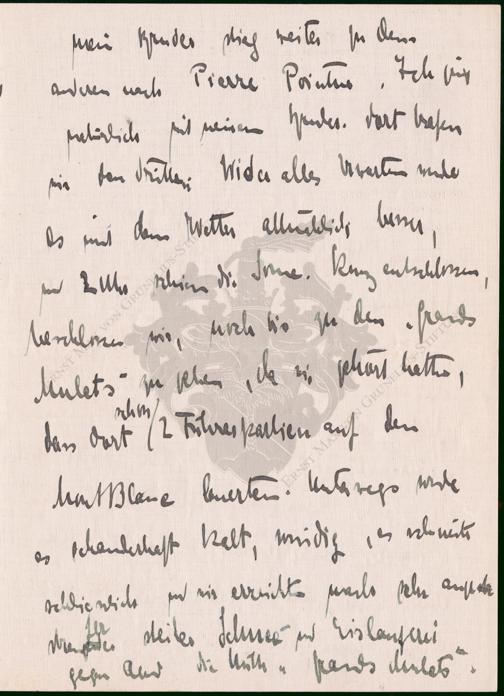 mein Bruder stieg weiter zu dem
anderen nach Pierre Pointue. Ich ging
natürlich mit meinem Bruder. Dort trafen
wir den Dritten. Wider alles Erwarten wurde
es mit dem Wetter allmählich besser,
um 2 Uhr schien die Sonne. Kurz entschlossen,
beschlossen wir, noch bis zu den „Grands
Mulets“ zu gehen, da wir gehört hatten,
dass dort schon 2 Führerpartien auf den
Mont Blanc lauerten. Unterwegs wurde
es schauderhaft kalt, windig, es schneite
schliesslich und wir erreichten nach sehr
steiler Schnee und Eislauferei
gegen Abend die Hütte „Grands Mulets“.
ERNST MAGNON GRUNELIUS-STIFTUNG